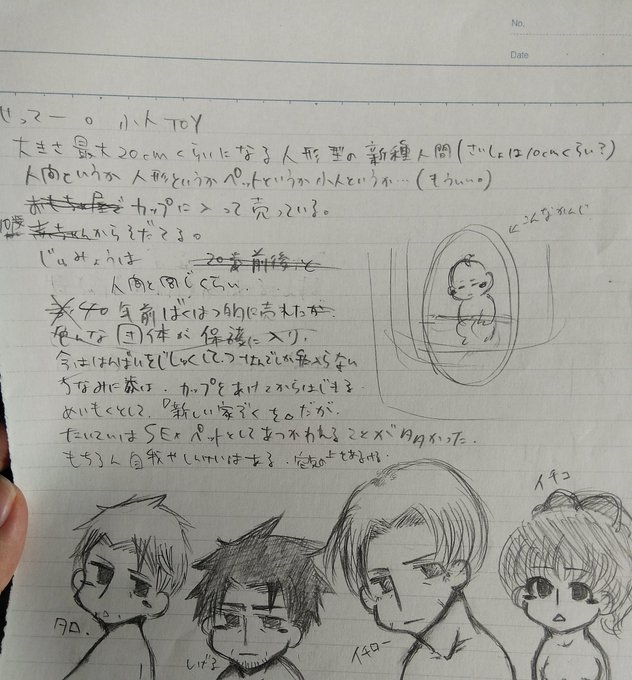 No.
Date
せってー。小人TOY
大きさ最大20cmくらいになる人形型の新種人間(さいしょは10cmくらい?)
人間というか人形というかペットというか小人というか…(もういい。)
おもちゃ屋で カップに入って売っている。
赤ちゃんからそだてる。
←こんなかんじ
じゅみょうは 20歳前後と
人間と同じくらい
40年前ばくはつ的に売れたが
色んな団体が保護に入り、
今ははんばいをじしゅくして
ちなみに歳は、カップをあけてからはじまる。
めいもくとして、『新しい家ぞくを。』だが、
たいていはSEXペットとしてあつかわれることが多かった。
もちろん自我や はある。
イチコ
タロ、
しげる
イチロー